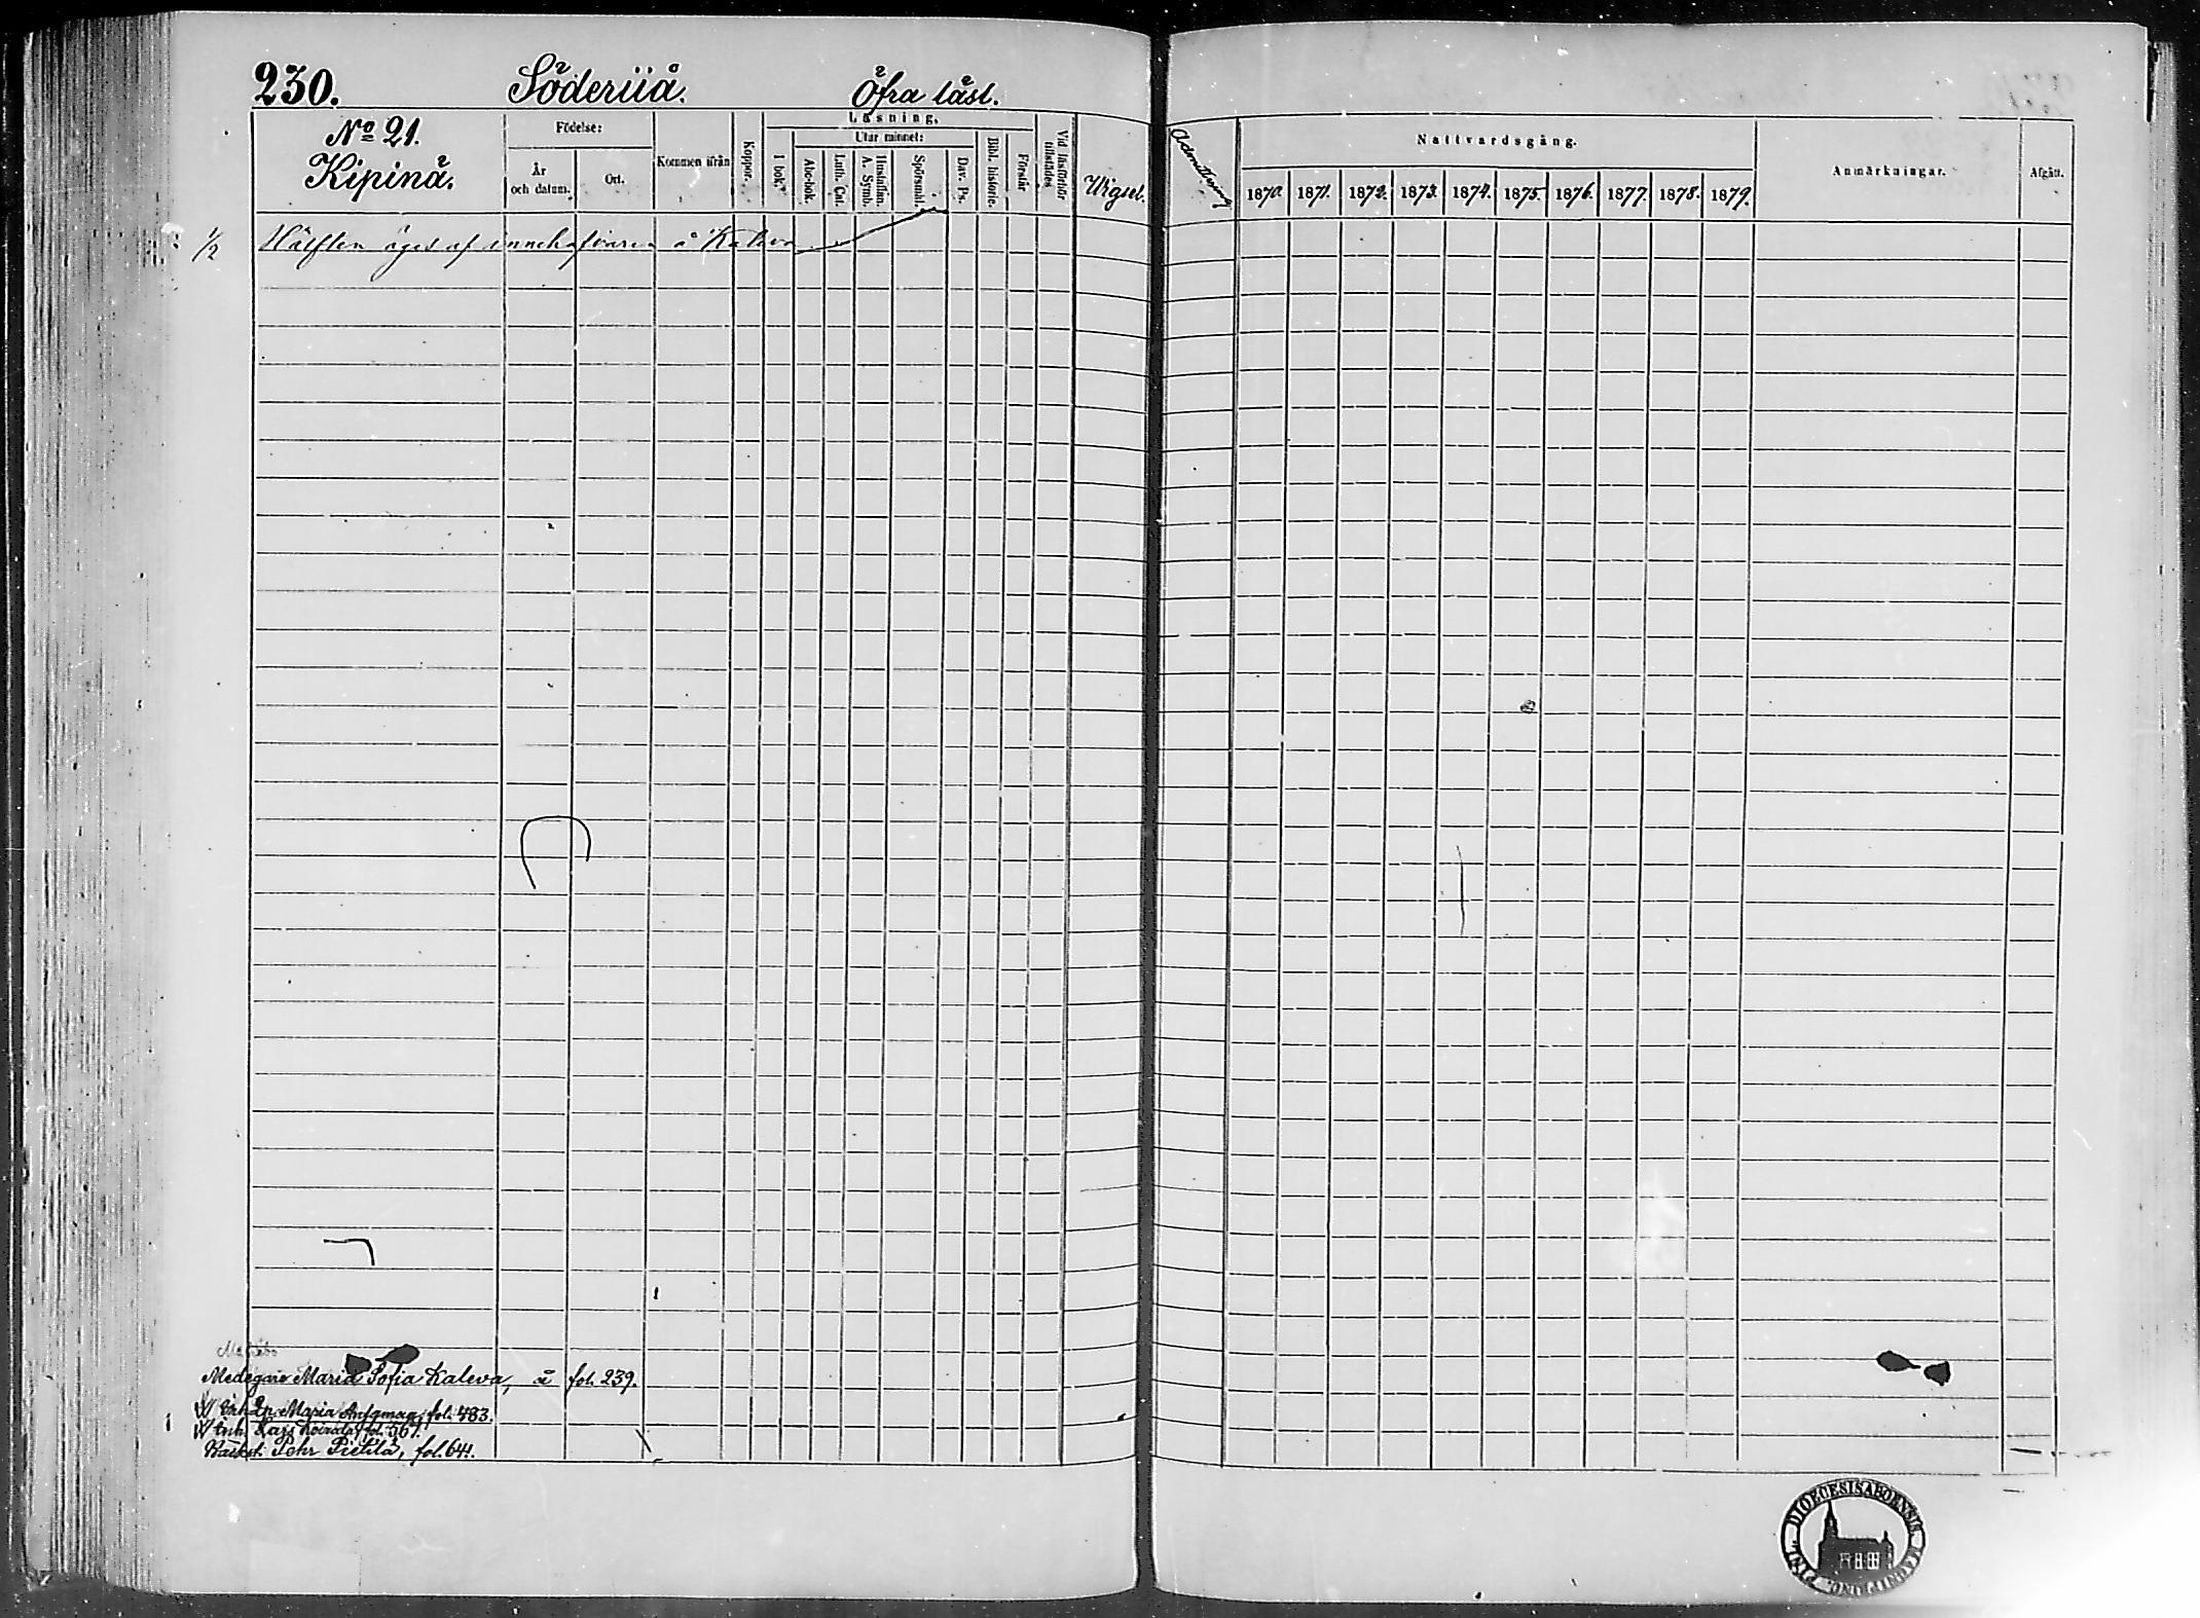 230. Söderiiå. Öfra läsl.
No 21.
Kipinä.
Födelse:
År
och datum.
Ort.
Kommen ifrån
Koppor.
Läsning.
I bok.
Utur minnet:
Abc-bok.
Luth. Cat.
Hustaflan.
A. Symb.
Spörsmål.
Dav. Ps.
Bibl. historie.
Förstår
Vid läsförhör
tillstädes
Wigsel.
Admittering
Nattvardsgång.
1870. 1871. 1872. 1873. 1874. 1875. 1876. 1877. 1878. 1879.
Anmärkningar.
Afgått.
1/2 Hälften äges af innehafvaren å Kaleva
Medegare Maria Sofia Kaleva, å fol. 239.
Maria fol. 483.
Inh. fol. 567.
Backst. Pehr Pietilä, fol. 641.
DIOECESIS ABOENSIS